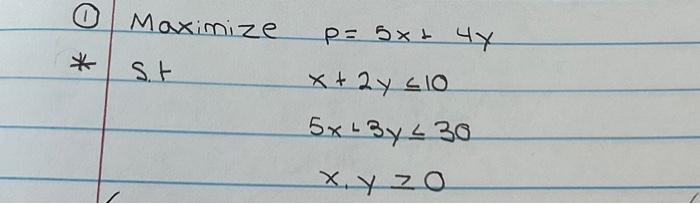 ① Maximize p = 5x + 4y
* S.t x + 2y ≤ 10
5x + 3y ≤ 30
x, y ≥ 0